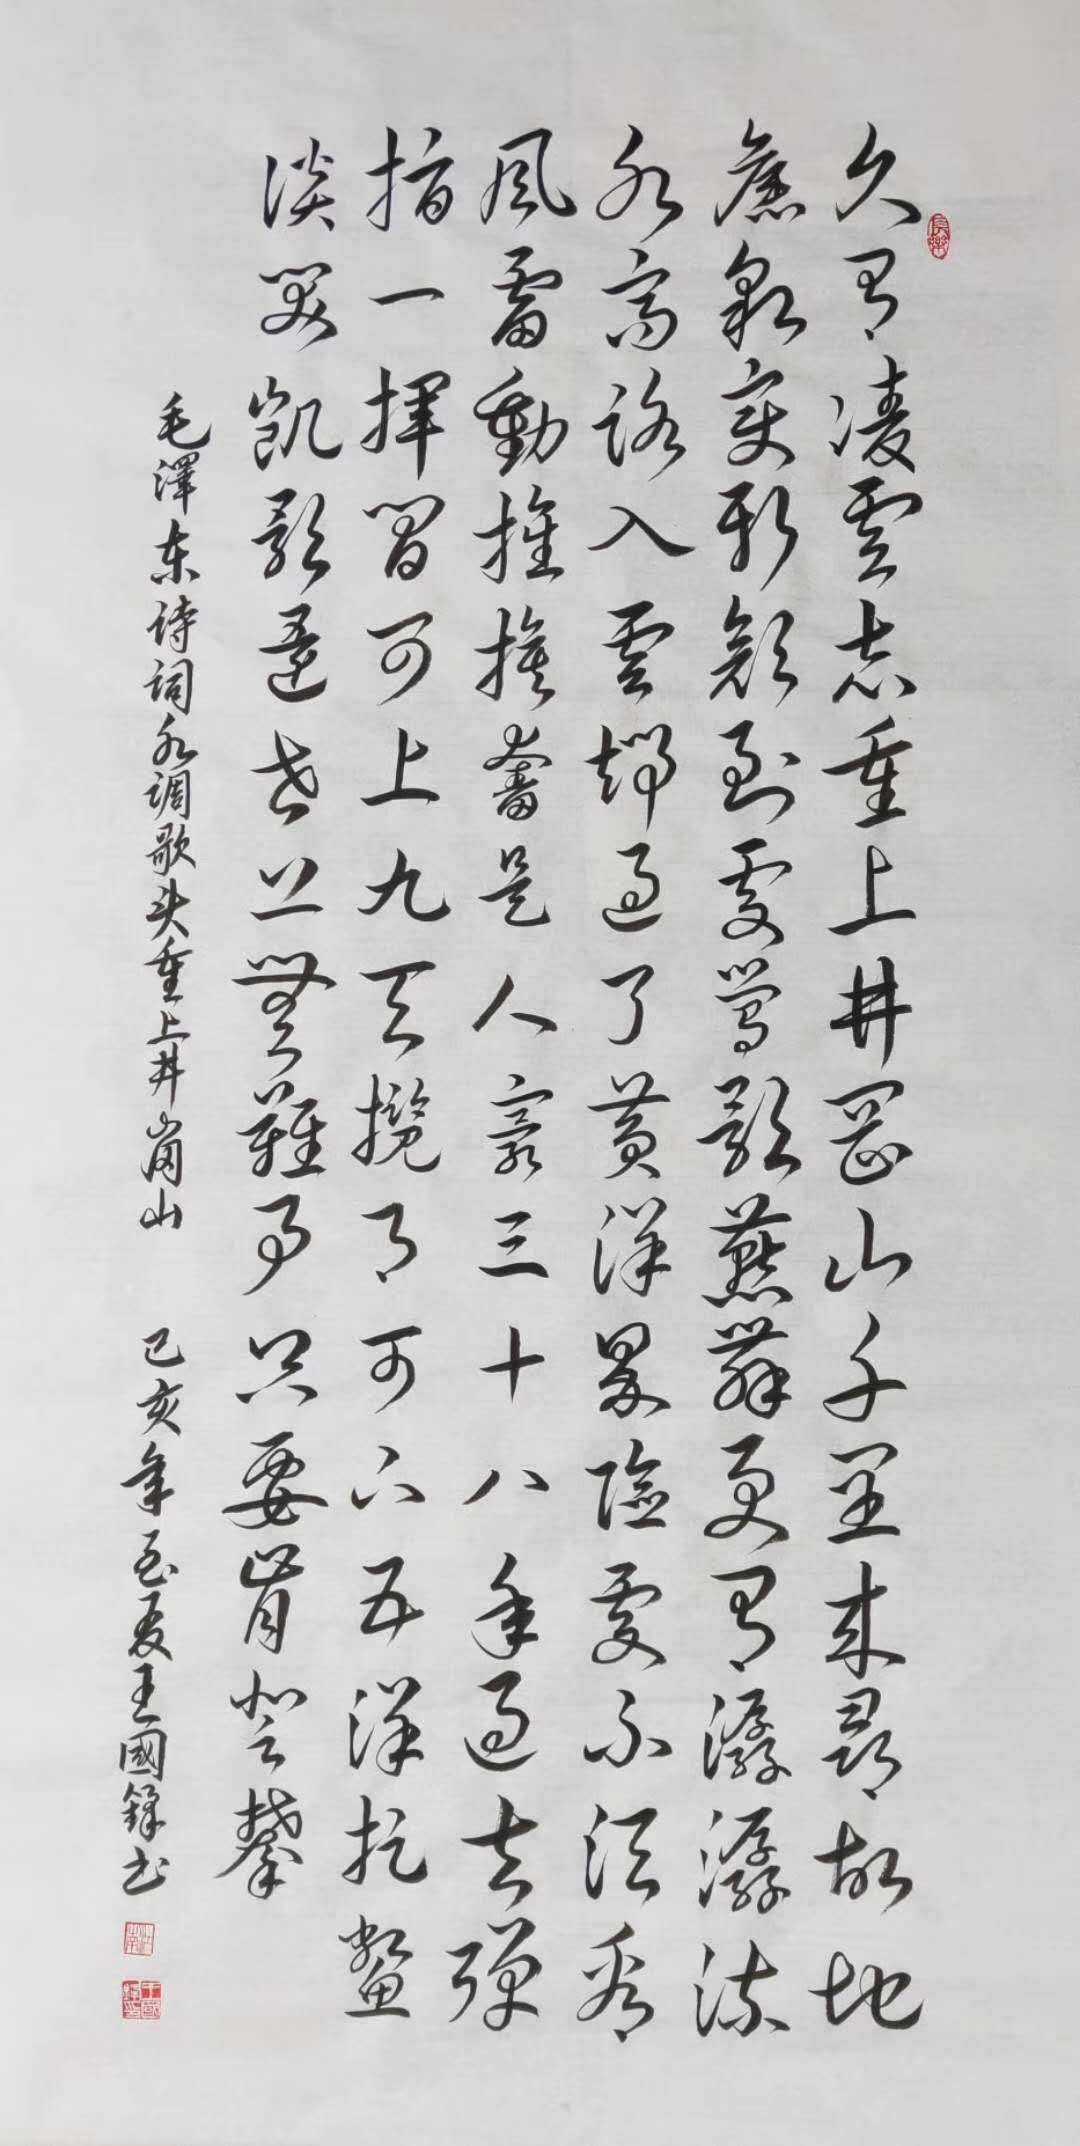 長樂
久有凌雲志重上井岡山千里來尋故地
舊貌變新顏到處鶯歌燕舞更有潺潺流
水高路入雲端過了黃洋界險處不須看
風雷動旌旗奮是人寰三十八年過去彈
指一揮間可上九天攬月可下五洋捉鱉
談笑凱歌還世上無難事只要肯登攀
毛澤东诗词水调歌头重上井崗山 己亥年夏王國鋒书